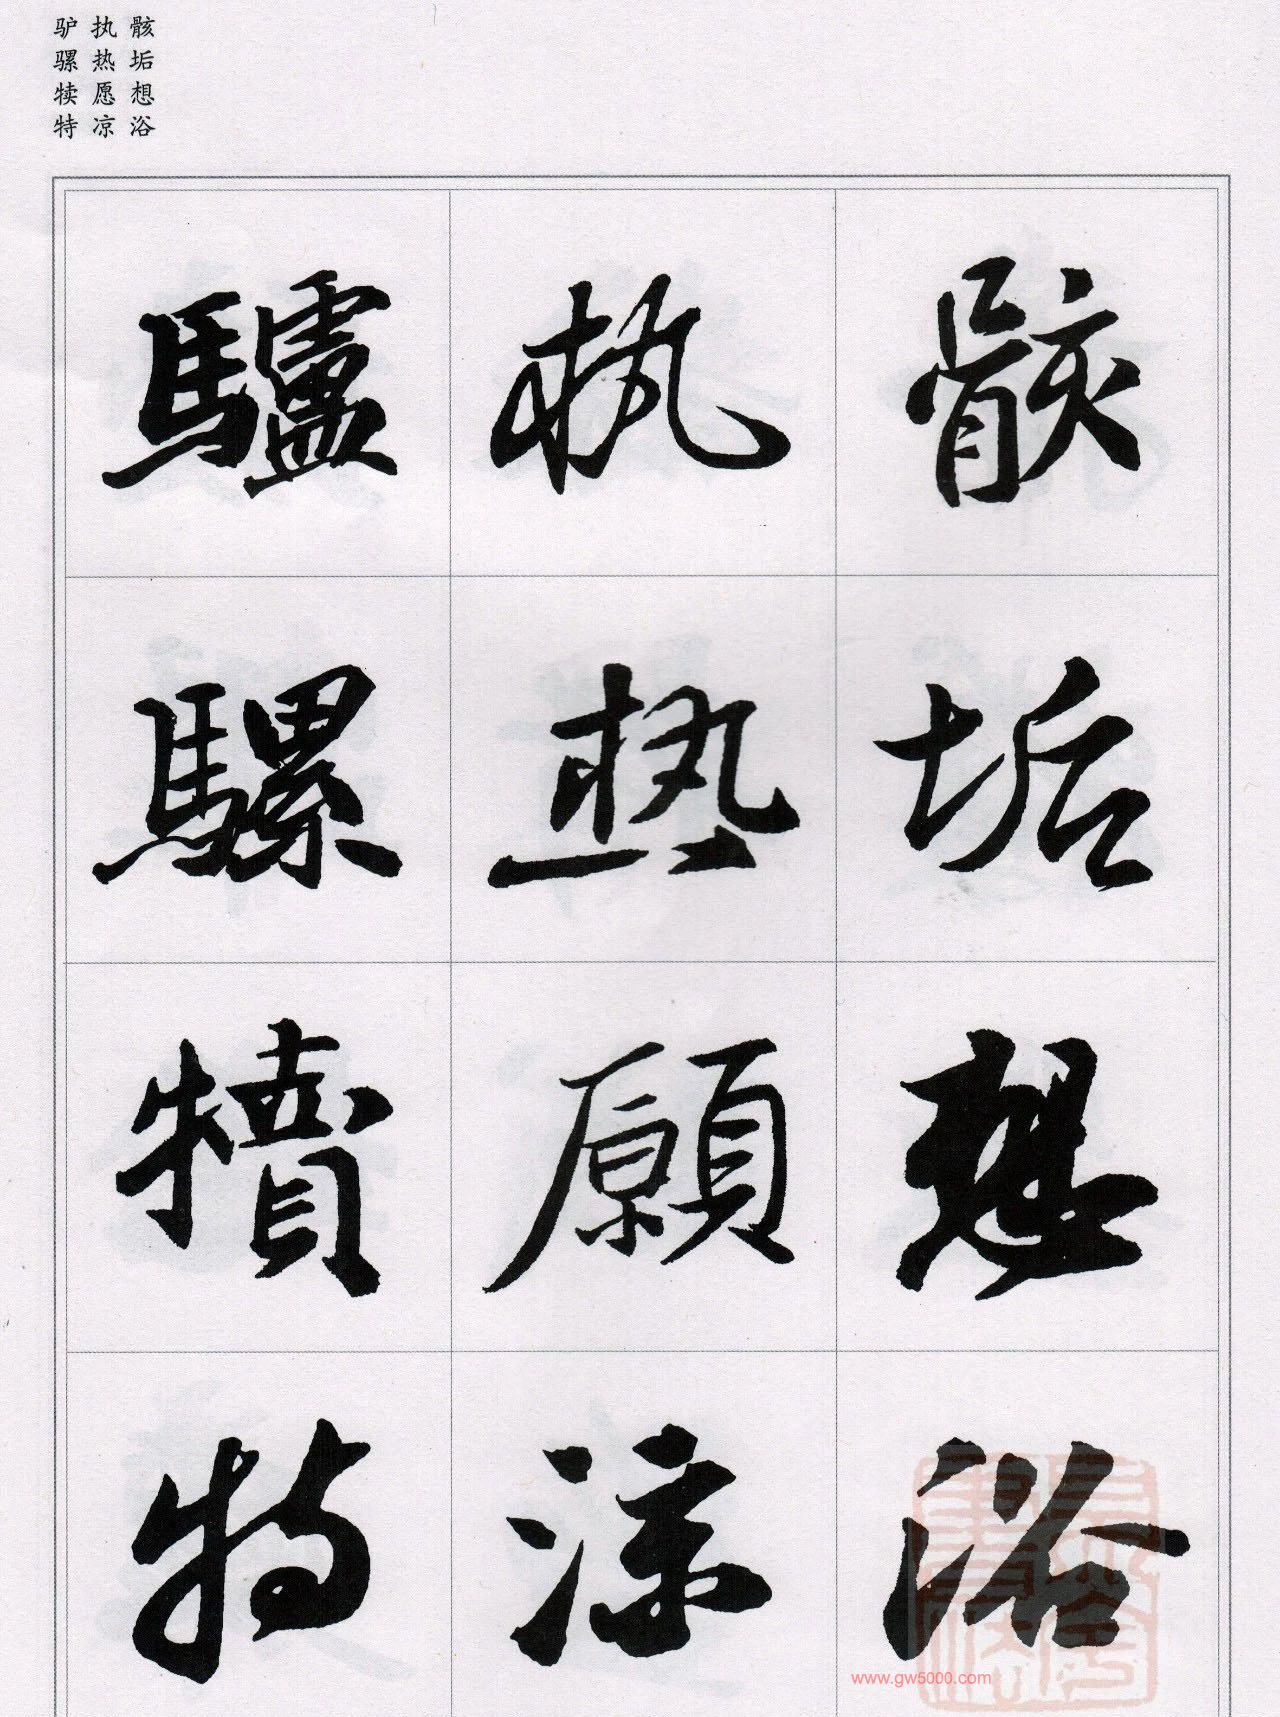 骸垢想浴
执热愿凉
驴骡犊特
骸垢想浴
执热願涼
驢騾犢特
www.gw5000.com